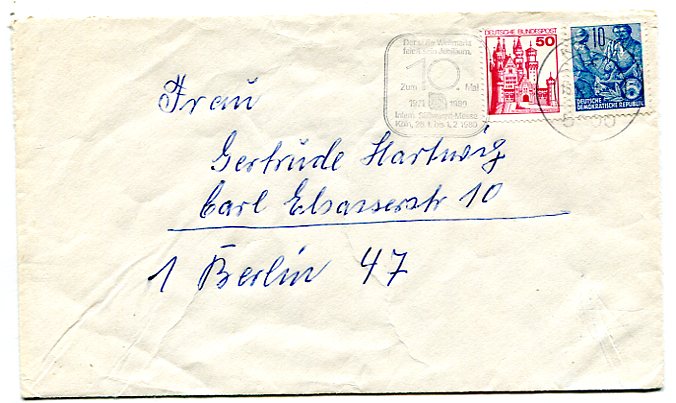 feiert sein Jubiläum.
10.
Zum Mal
1971 1980
Intern. Süßwaren-Messe
Köln, 28.1. bis 1.2.1980
DEUTSCHE BUNDESPOST
50
10
DEUTSCHE
DEMOKRATISCHE REPUBLIK
5
Frau
Gertrude Hartwig
Carl Elsasserstr 10
1 Berlin 47